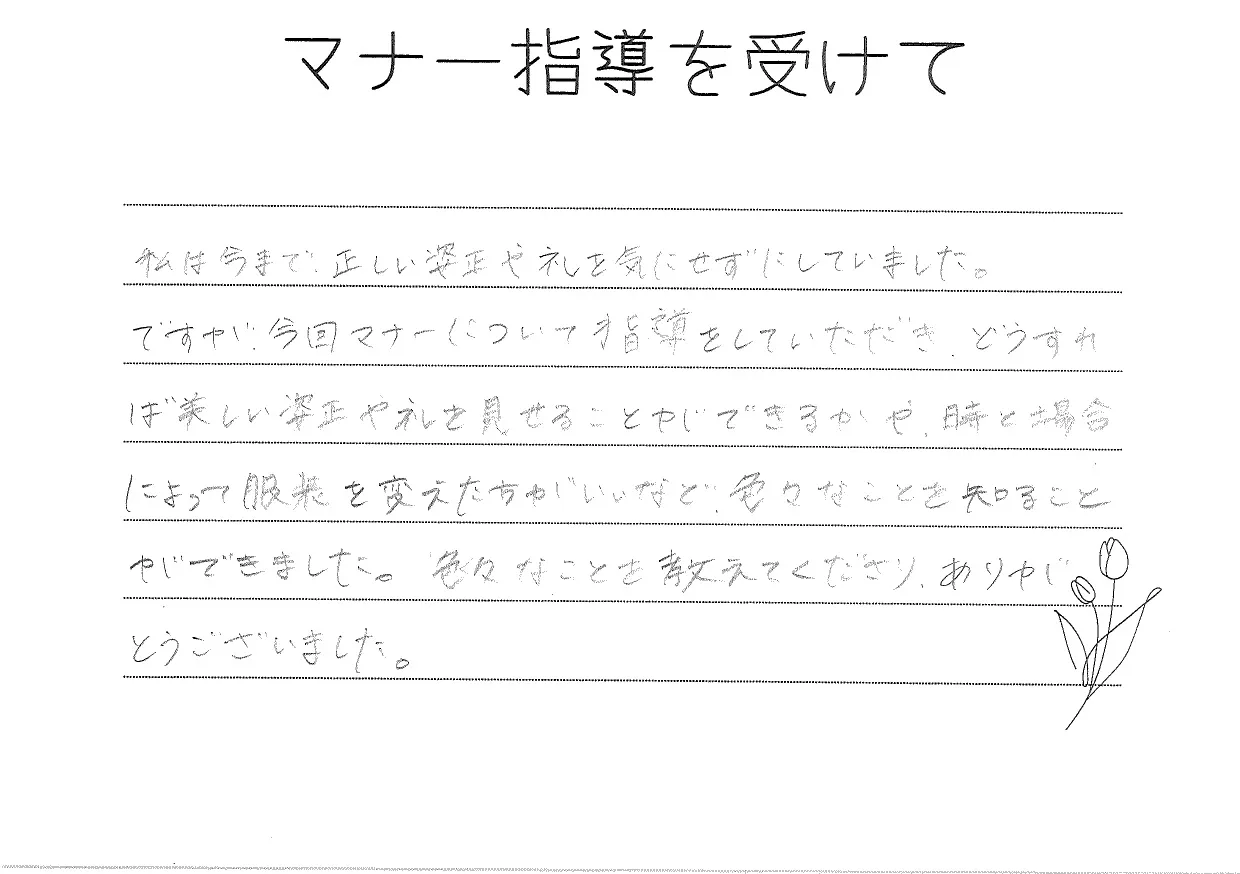 マナー指導を受けて
私は今まで、正しい姿正や礼を気にせずにしていました。
ですが、今回マナーについて指導をしていただき、どうすれ
ば美しい姿正や礼を見せることができるかや、時と場合
によって服装を変えた方がいいなど、色々なことを知ること
ができました。色々なことを教えてくださり、ありが
とうございました。